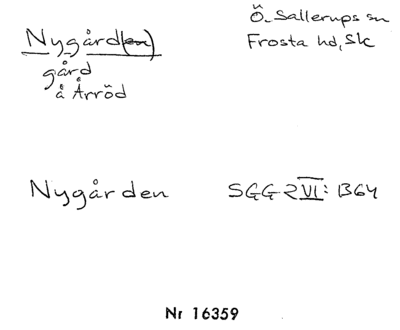 Nygård(en)
gård
å Årröd
Ö. Sallerups sn
Frosta hd, Sk
Nygården
SGG 2 VI: B64
Nr 16359